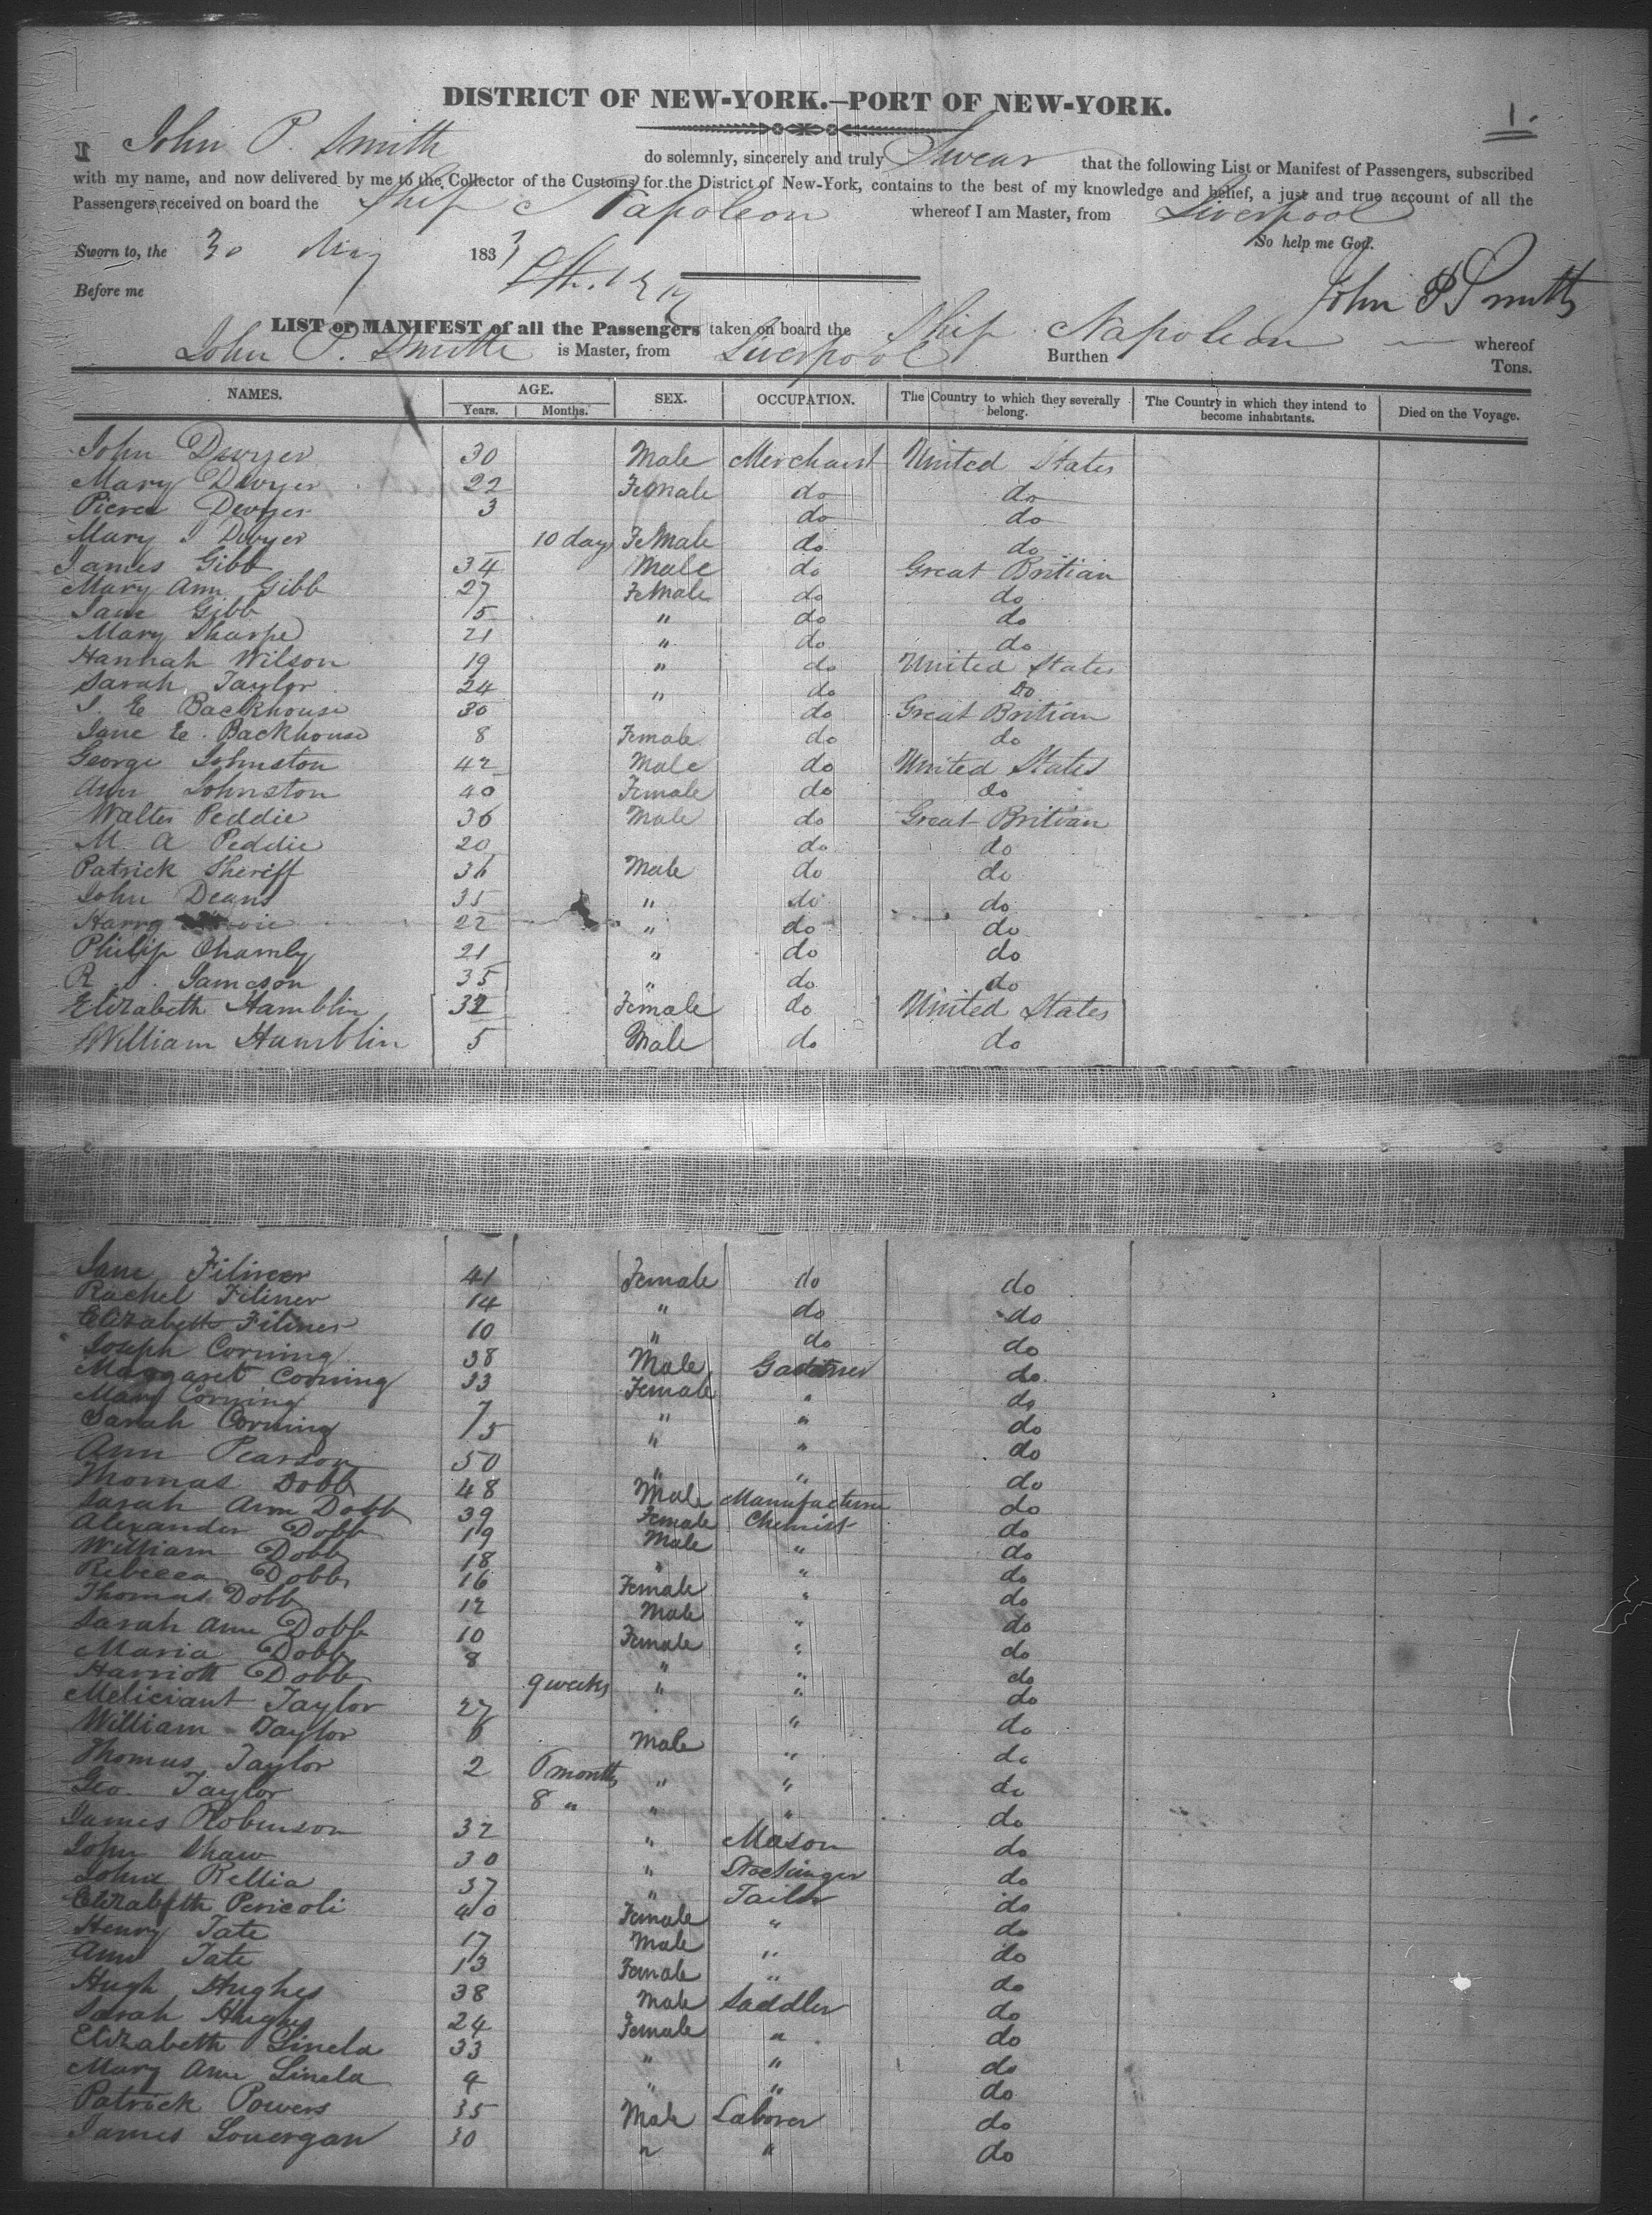 1.
DISTRICT OF NEW-YORK.—PORT OF NEW-YORK.
I John P. Smith do solemnly, sincerely and truly Swear that the following List or Manifest of Passengers, subscribed
with my name, and now delivered by me to the Collector of the Customs for the District of New-York, contains to the best of my knowledge and belief, a just and true account of all the
Passengers received on board the Ship Napoleon whereof I am Master, from Liverpool
So help me God.
Sworn to, the 30 1833
Before me
John P Smith
LIST or MANIFEST of all the Passengers taken on board the Ship Napoleon whereof
John P. Smith is Master, from Liverpool Burthen Tons.
NAMES. AGE. Years. Months. SEX. OCCUPATION. The Country to which they severally belong. The Country in which they intend to become inhabitants. Died on the Voyage.
John Dwyer 30 Male Merchant United States
Mary Dwyer 22 Female do do
Pierce Dwyer 3 do do
Mary J Dwyer 10 days Female do do
James Gibb 34 Male do Great Britian
Mary Ann Gibb 27 Female do do
Jane Gibb 15 " do do
Mary Sharpe 21 " do do
Hannah Wilson 19 " do United States
Sarah Taylor 24 " do do
J. E Backhouse 30 do Great Britian
Jane E. Backhouse 8 Female do do
George Johnston 42 Male do United States
Ann Johnston 40 Female do do
Walter Peddie 36 Male do Great Britian
M A Peddie 20 do do
Patrick Sheriff 36 Male do do
John Deans 35 " do do
Harry 22 " do do
Philip Chamly 21 " do do
R Jameson 35 " do do
Elizabeth Hamblin 32 Female do United States
William Hamblin 5 Male do do
Jane Filner 41 Female do do
Rachel Filiner 14 " do do
Elizabeth Filiner 10 " do do
Joseph Corning 38 Male do
Margaret Corning 33 Female " do
Mary Corning 7 " " do
Sarah Corning 15 " " do
Ann Pearson 50 " " do
Thomas Dobb 48 Male Manufacturer do
Sarah Ann Dobb 39 Female Chemist do
Alexander Dobb 19 Male " do
William Dobb 18 " " do
Rebecca Dobb 16 Female " do
Thomas Dobb 12 Male " do
Sarah Ann Dobb 10 Female " do
Maria Dobb 8 " " do
Harriott Dobb 9 weeks " " do
Meliciant Taylor 27 " do
William Taylor 6 Male " do
Thomas Taylor 2 6 months " " do
Geo. Taylor 8 " " " do
James Robinson 32 " Mason do
John Shaw 30 " Stockinger do
John Rellia 37 " Tailor do
Elizabeth Pericoli 40 Female " do
Henry Tate 17 Male " do
Ann Tate 13 Female " do
Hugh Hughes 38 Male Saddler do
Sarah Hughes 24 Female " do
Elizabeth Linela 33 " " do
Mary Ann Linela 9 " " do
Patrick Powers 35 Male Laborer do
James Lonergan 30 " " do